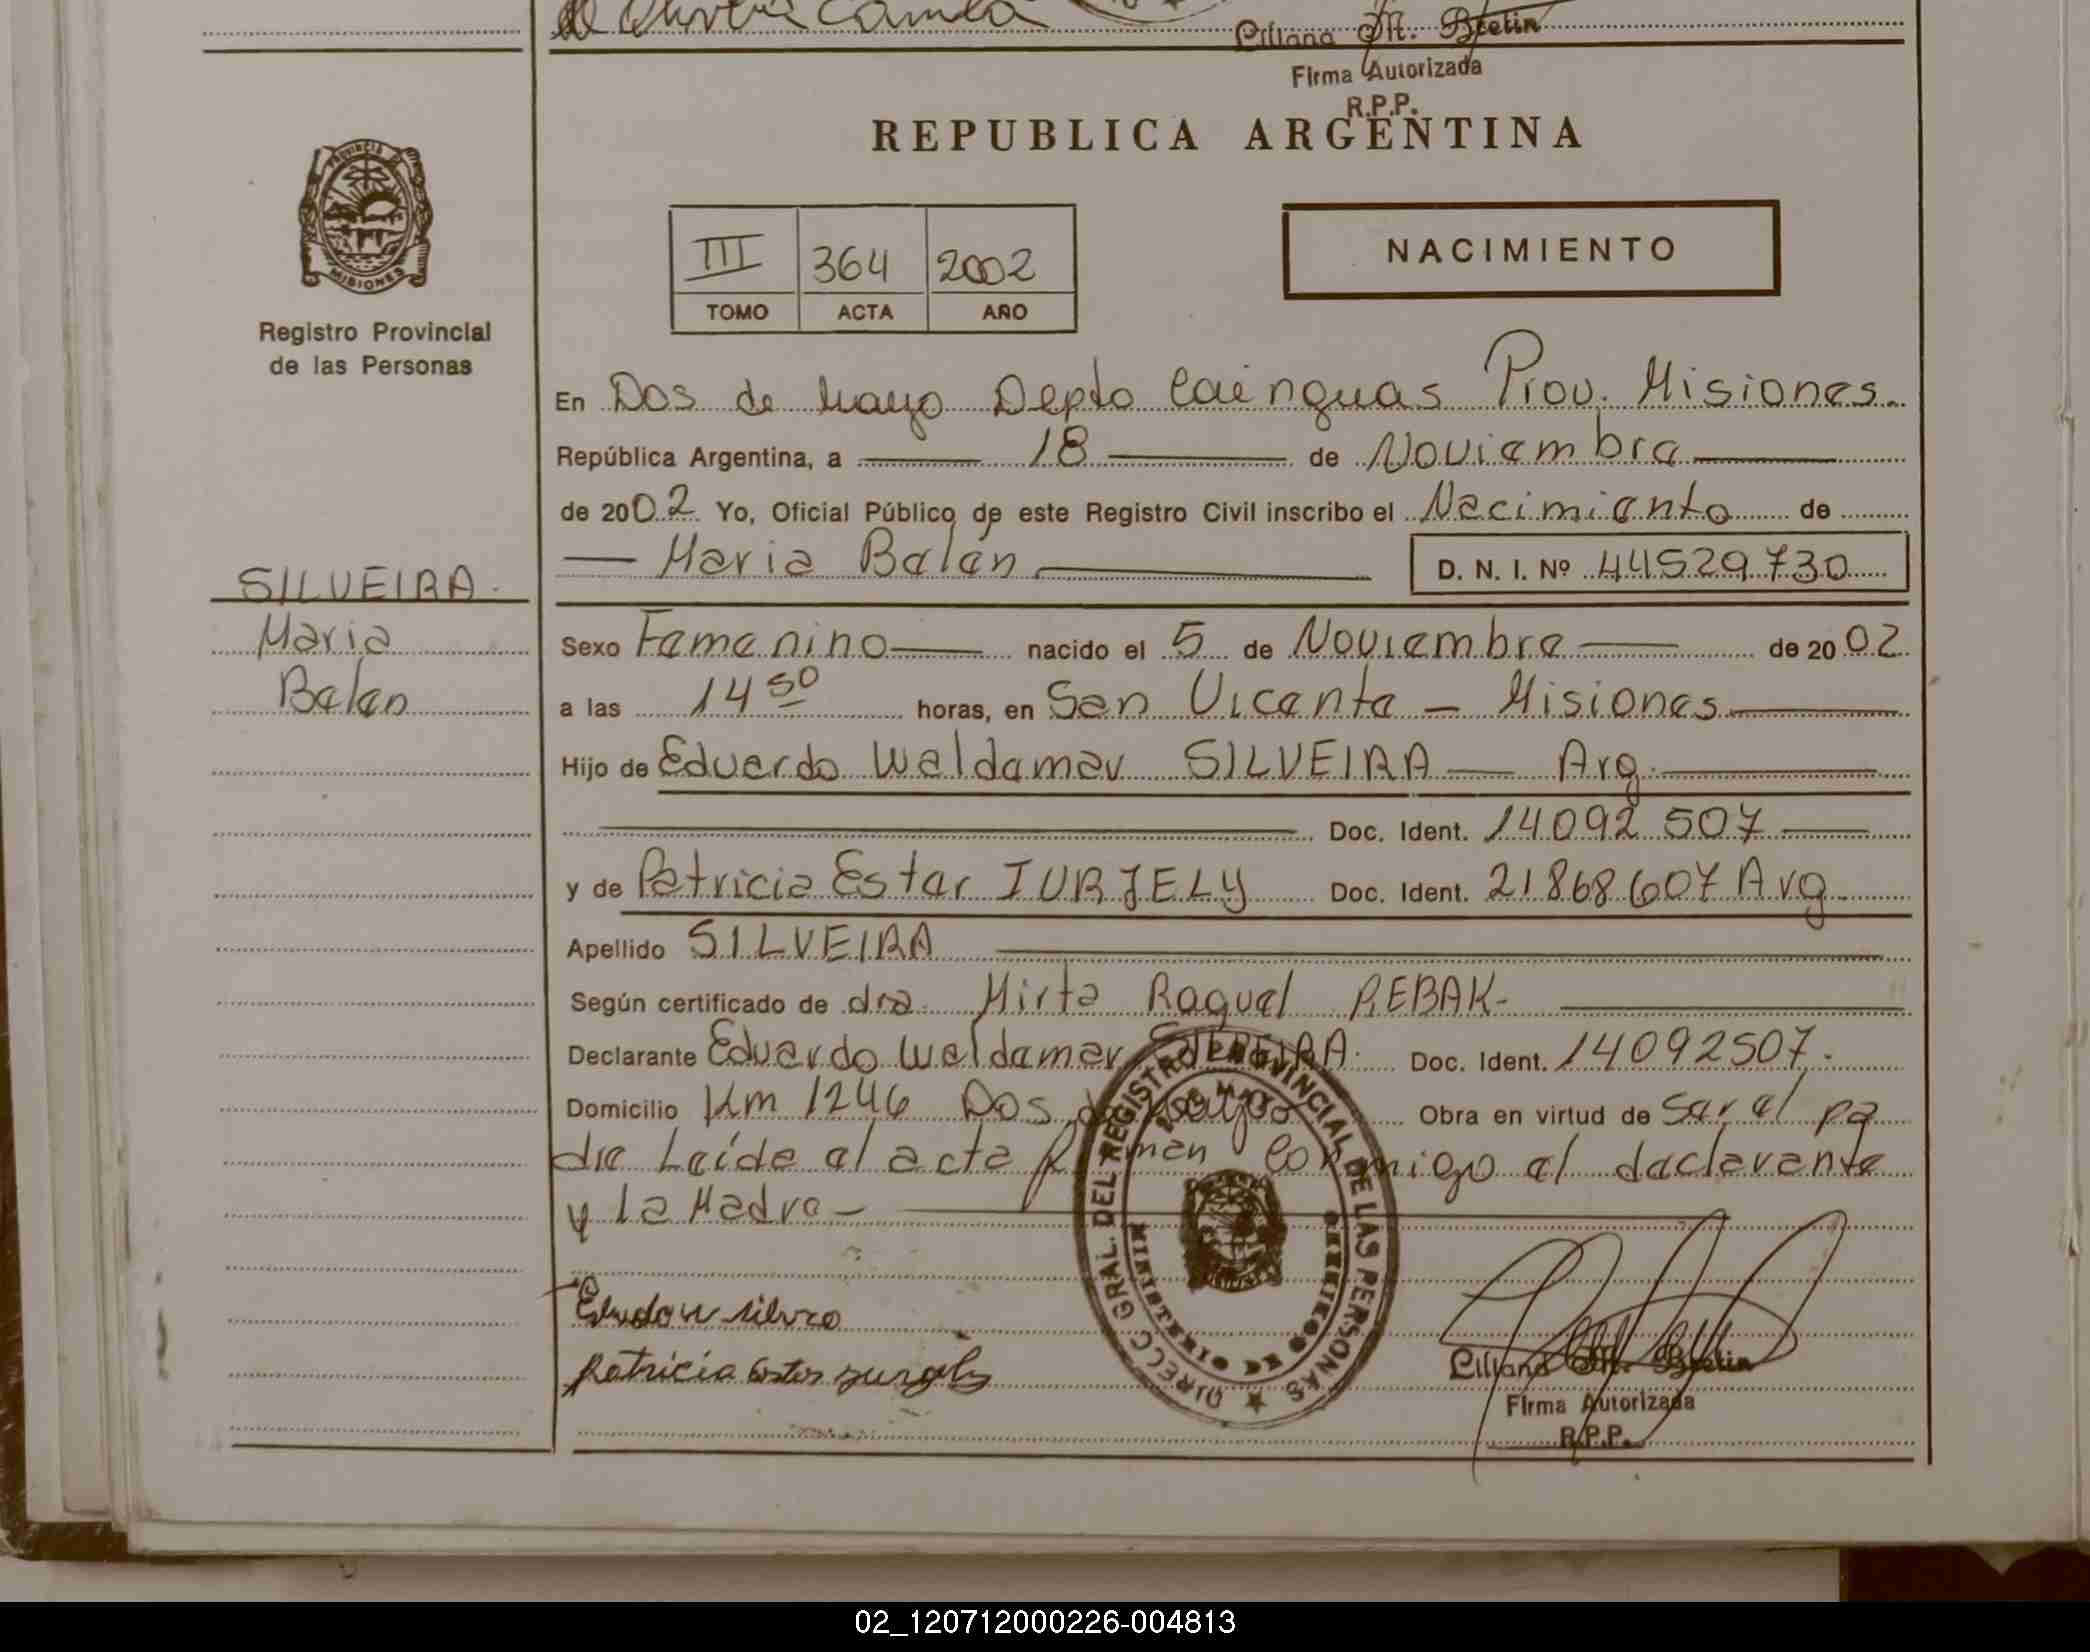 de Olivera Camila
Liliana M. Bretin
Firma Autorizada
R.P.P.
REPUBLICA ARGENTINA
PROVINCIA DE MISIONES
III 364 2002
TOMO ACTA AÑO
NACIMIENTO
Registro Provincial
de las Personas
En Dos de Mayo Depto Cainguas Prov. Misiones.
República Argentina, a 18 de Noviembre
de 2002 Yo, Oficial Público de este Registro Civil inscribo el Nacimiento de
Maria Belén D. N. I. Nº 44529730
SILVEIRA.
Maria
Belen
Sexo Femenino nacido el 5 de Noviembre de 2002
a las 14 50 horas, en San Vicente - Misiones
Hijo de Eduardo Waldemar SILVEIRA Arg.
Doc. Ident. 14092507
y de Patricia Ester IURJELY Doc. Ident. 21868607 Arg
Apellido SILVEIRA
Según certificado de dra. Mirta Raquel REBAK-
Declarante Eduardo Waldemar SILVEIRA. Doc. Ident. 14092507.
Domicilio Km 1246 Dos de Mayo Obra en virtud de ser el pa
dre Leída el acta firman conmigo el declarante
y la Madre-
DIRECC. GRAL. DEL REGISTRO PROVINCIAL DE LAS PERSONAS
MINISTERIO DE GOBIERNO
Patricia Ester
Liliana M. Bretin
Firma Autorizada
R.P.P.
02_120712000226-004813